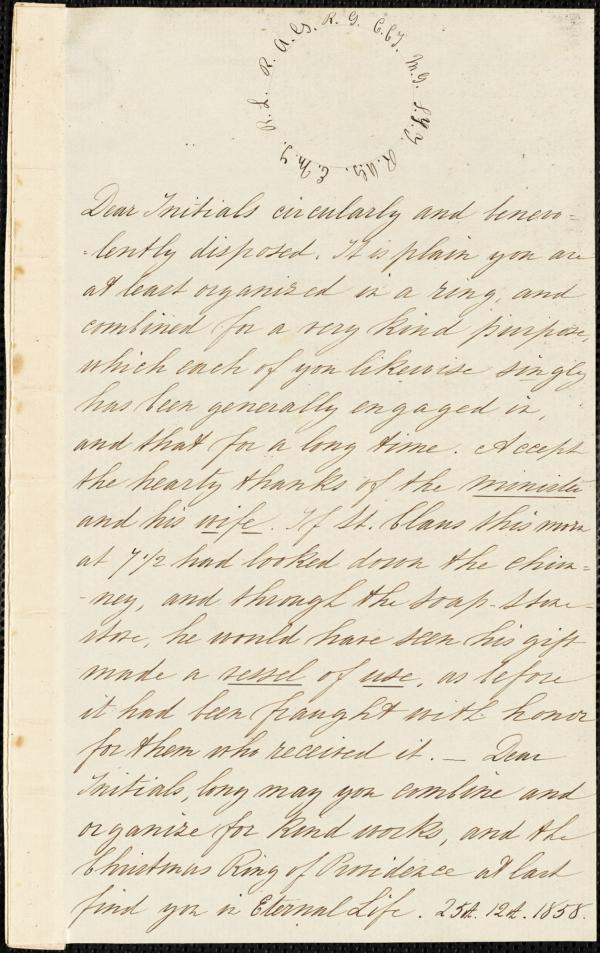 R. L. R. A. G. R. G. C. G. M. G. L. Y. Y. R. W. G. E. M. Y.
Dear Initials circularly and benevo-
-lently disposed. It is plain you are
at least organized in a ring, and
combined for a very kind purpose,
which each of you likewise singly
has been generally engaged in,
and that for a long time. Accept
the hearty thanks of the minister
and his wife. If St. Claus this morn
at 7 1/2 had looked down the chim=
-ney, and through the soap-stone-
stove, he would have seen his gift
made a vessel of use, as before
it had been fraught with honor
for them who received it. — Dear
Initials, long may you combine and
organize for kind works, and the
Christmas Ring of Providence at last
find you in Eternal Life. 25th. 12th. 1858.